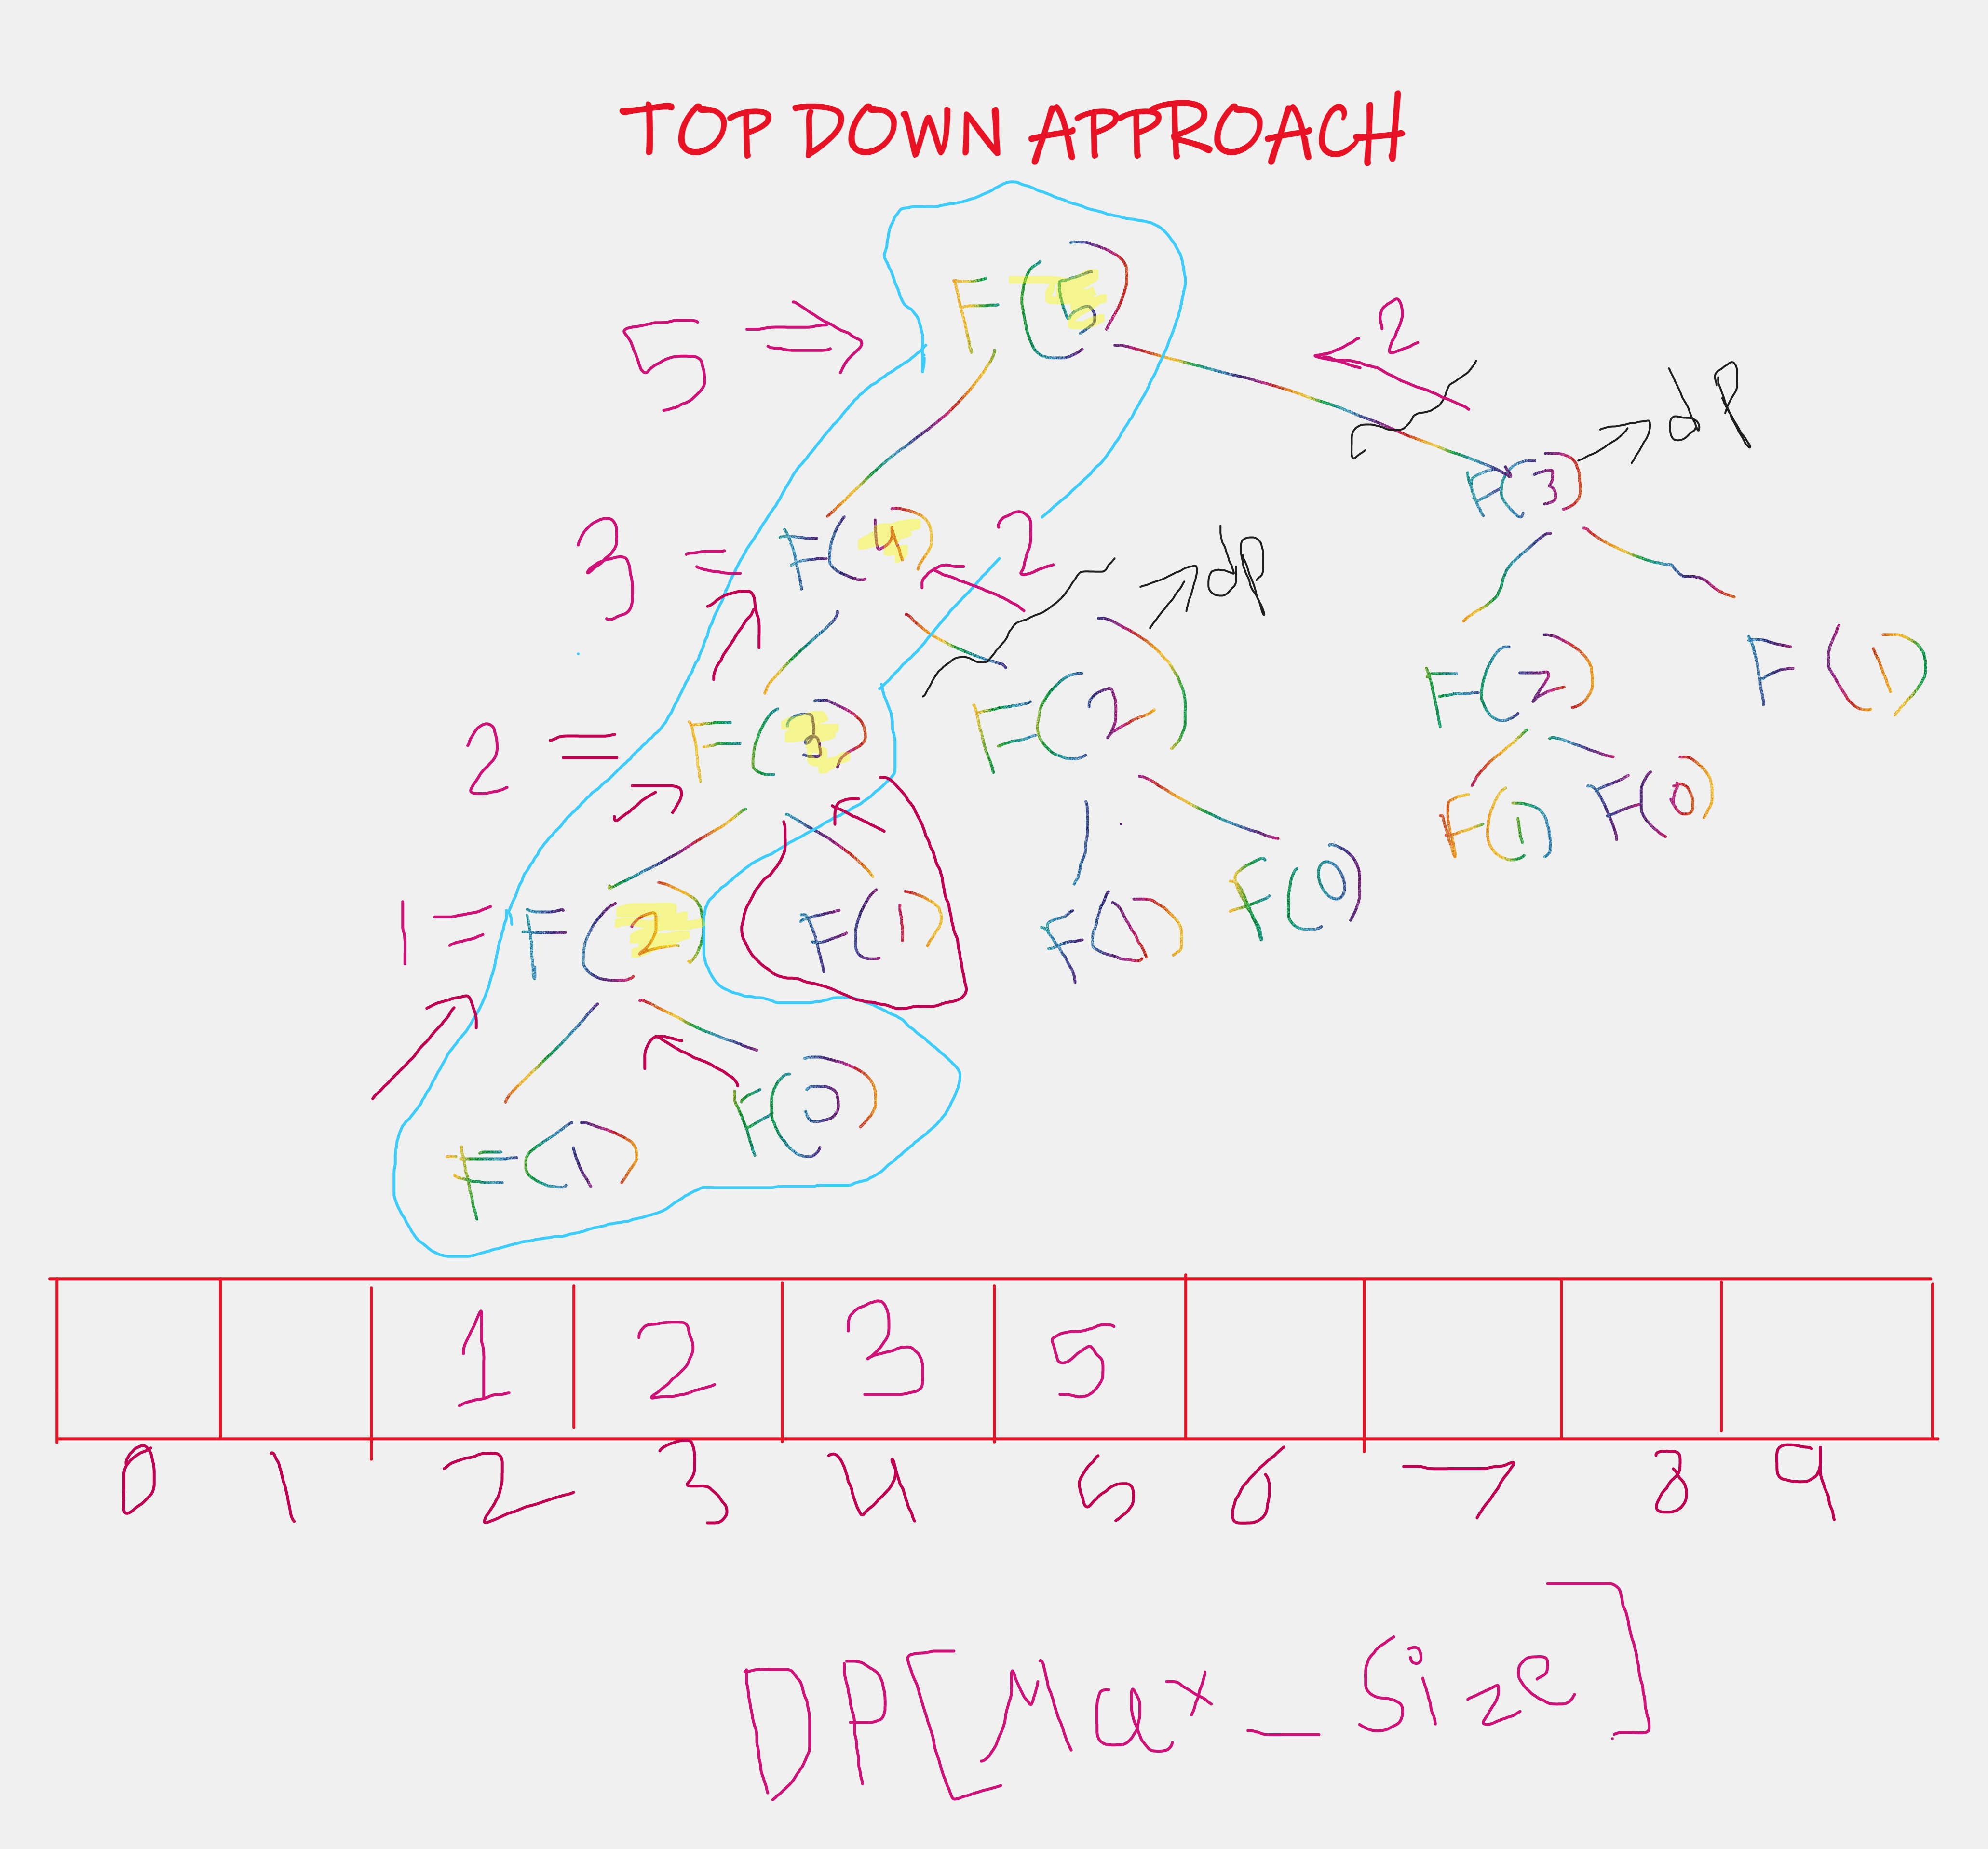 TOP DOWN APPROACH
5 ⇒ F(5) 2
dp
F(3)
3 = F(4) 2 dp
F(2) F(1)
2 = F(3) F(2)
F(1) F(0)
1 = F(2) F(1) F(1) F(0)
F(1) F(0)
1 2 3 5
0 1 2 3 4 5 6 7 8 9
DP[Max_Size]